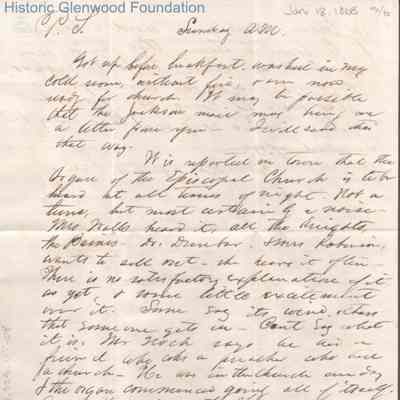 Historic Glenwood Foundation
Jan 18, 1868
P.S. Sunday A.M.
Got up before breakfast, washed in my
cold room, without fire, & am now
ready for church. It may be possible
that the Jackson mail may bring me
a letter from you I will send this
that way.
It is reported in town that the
Organ of the Episcopal Church is to be
heard at all times of night. Not a
tune, but most certainly a noise.
Mrs. Walls heard it, all the Knights,
the Raines. Dr. Dunbar. Mrs Robinson,
wants to sell out - she hears it often -
There is no satisfactory explanation of it
as yet, & some little excitement
over it. Some say its wind, others
that some one gets in - Cant say what
it is. Mr. Koch says he has a
friend who was a preacher who had
a church - He was in the church one day
& the organ commenced going all of itself.